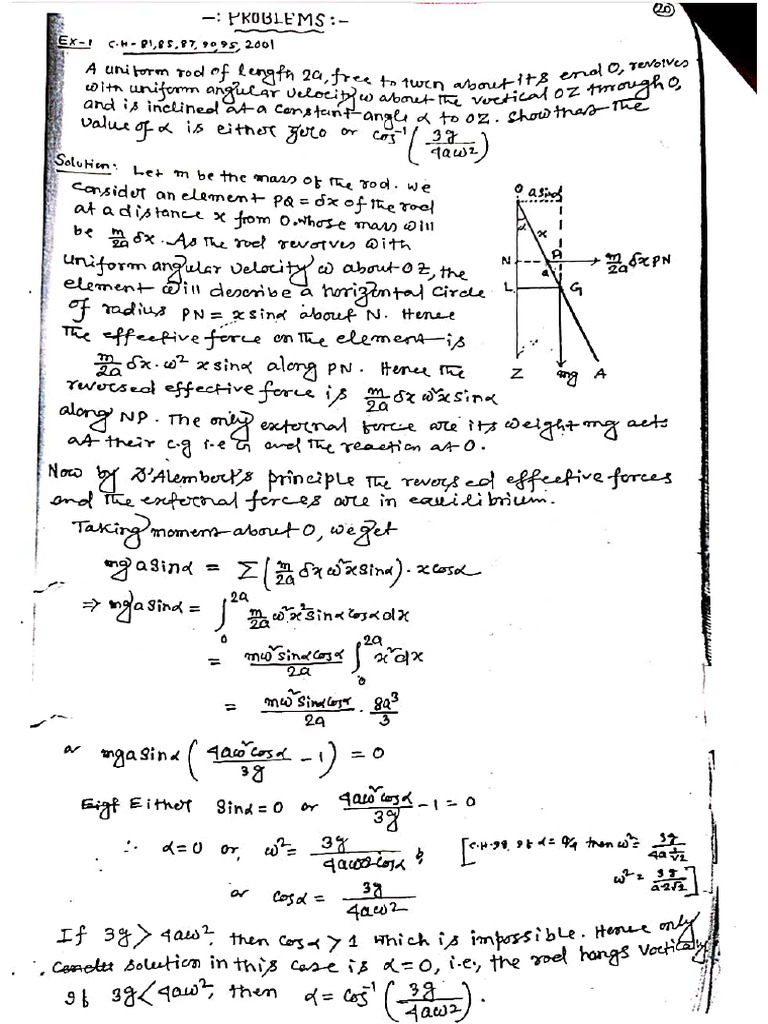 (20)
—: PROBLEMS :—
Ex-1 C.H - 81, 85, 87, 90, 95, 2001
A uniform rod of length 2a, free to turn about its end O, revolves
with uniform angular velocity ω about the vertical OZ through O,
and is inclined at a constant angle α to OZ. Show that the
value of α is either zero or cos⁻¹ (3g/4aω²)
Solution: Let m be the mass of the rod. We
consider an element PQ = δx of the rod
at a distance x from O. whose mass will
be m/2a δx. As the rod revolves with
uniform angular velocity ω about OZ, the
element will describe a horizontal circle
of radius PN = x sinα about N. Hence
the effective force on the element is
m/2a δx. ω² x sinα along PN. Hence the
reversed effective force is m/2a δx ω² x sinα
along NP. The only external force are its weight mg acts
at their c.g i.e G and the reaction at O.
O a sinα
α x
N P m/2a δx PN
Q
L G
Z mg A
Now by D'Alembert's principle the reversed effective forces
and the external forces are in equilibrium.
Taking moment about O, we get
mg a sinα = Σ (m/2a δx ω² x sinα) . x cosα
⇒ mg a sinα = ∫₀²ᵃ m/2a ω² x² sinα cosα dx
= mω² sinα cosα/2a ∫₀²ᵃ x² dx
= mω² sinα cosα/2a . 8a³/3
or mga sinα (4aω² cosα/3g - 1) = 0
Either sinα = 0 or 4aω² cosα/3g - 1 = 0
∴ α = 0 or, ω² = 3g/4aω² cosα [C.H-98. If α = π/4 then ω² = 3g/4a 1/√2
ω² = 3g/a.2√2]
or cosα = 3g/4aω²
If 3g > 4aω², then cosα > 1 which is impossible. Hence only
solution in this case is α = 0, i.e., the rod hangs vertically
If 3g < 4aω², then α = cos⁻¹ (3g/4aω²).